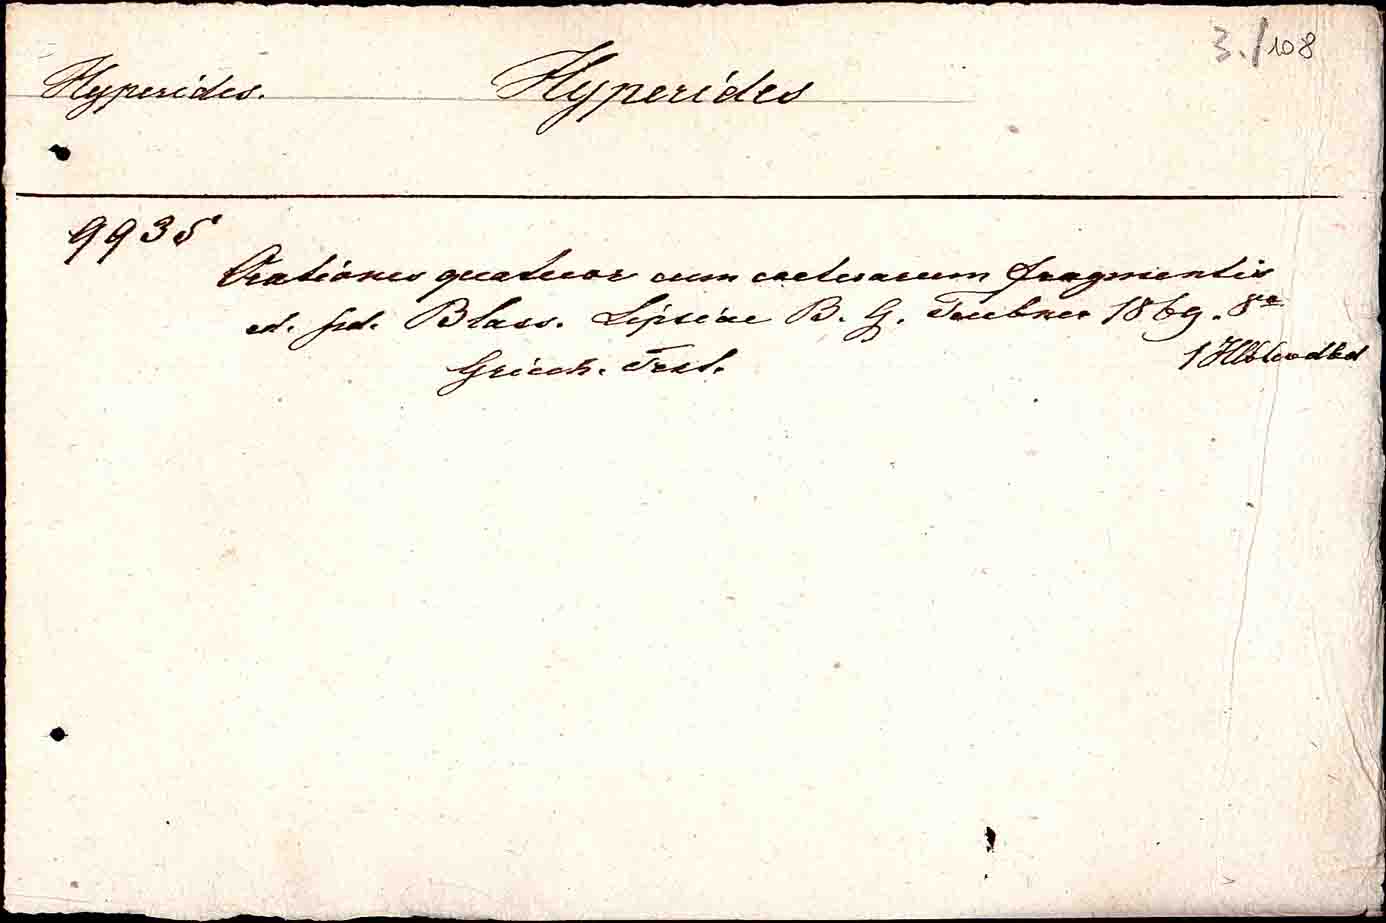 3./108
Hyperides. Hyperides
9935
Orationes quatuor cum caeterarum fragmentis
ed. frd. Blass. Lipsiae B. G. Teubner 1869. 8°
Griech. Text. 1 Hlblwdbd